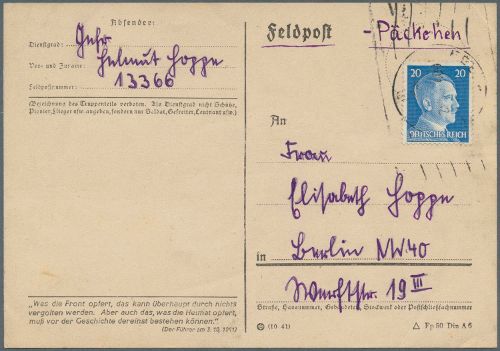 Absender:
Dienstgrad: Gefr
Vor- und Zuname: Helmut Hoppe
Feldpostnummer: 13366
(Bezeichnung des Truppenteils verboten. Als Dienstgrad nicht Schütze,
Pionier, Flieger usw. angeben, sondern nur Soldat, Gefreiter, Leutnant usw.)
„Was die Front opfert, das kann überhaupt durch nichts
vergolten werden. Aber auch das, was die Heimat opfert,
muß vor der Geschichte dereinst bestehen können.“
(Der Führer am 3. 10. 1941)
Feldpost - Päckchen
20 20
DEUTSCHES REICH
An
Frau
Elisabeth Hoppe
in Berlin NW.40
Werftstr. 19 III
Straße, Hausnummer, Gebäudeteil, Stockwerk oder Postschließfachnummer
(10 41)
Fp 50 Din A 6